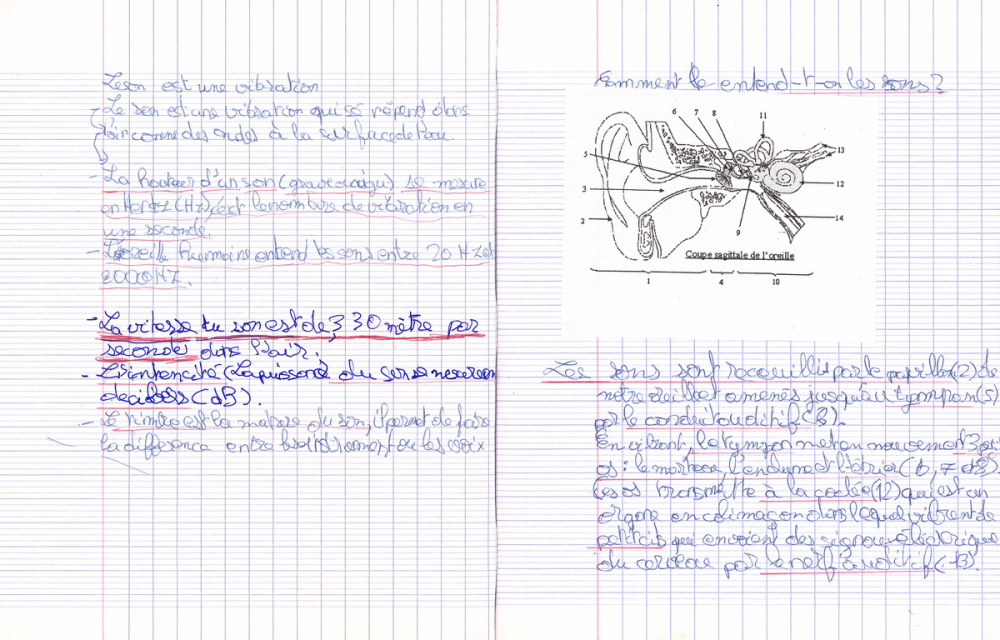 Leson est une vibration
- Le son est une vibration qui se répend dans
l'air comme des ondes à la surface de l'eau.
- La hauteur d'un son (grave ou aigu) se mesure
en Hertz (Hz), c'est le nombre de vibration en
une seconde.
- L'oreille humaine entend les sons entre 20 HZ et
2000HZ.
- La vitesse du son est de 330 mètre par
seconde dans l'air.
- L'intencité (La puissance) du son se mesure en
decibels (dB).
- Le timbre est la mature du son, il permet de faire
la différence entre les instrument ou les voix
Comment le entend-t-on les sons?
6 7 8 11
5 13
3 12
2 14
9
Coupe sagittale de l'oreille
1 4 10
Les sons sont recueilli par le papillon (2) de
notre oreille et amenés jusqu'au tympan (5)
par le conduit auditif (3).
En vibrant, le tympan met en mouvement 3 petit
os : le marteau, l'enclume et l'étrier (6, 7 et 8).
Ces os transmette à la coclée (12) qui est un
organe en colimaçon dans lequel vibrent de
petit cils qui envoient des signaux éléctrique
au cerveau par le nerf auditif (13).